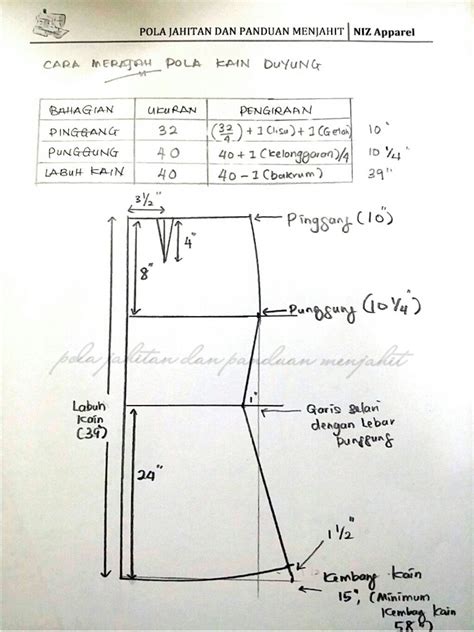 POLA JAHITAN DAN PANDUAN MENJAHIT | NIZ Apparel
CARA MERAJAH POLA KAIN DUYUNG
BAHAGIAN UKURAN PENGIRAAN
PINGGANG 32 (32/4) + 1 (lisu) + 1 (Getai) 10"
PUNGGUNG 40 40 + 1 (kelonggaran)/4 10 1/4"
LABUH KAIN 40 40 - 1 (bakrum) 39"
3 1/2"
Pinggang (10")
4"
8"
Punggung (10 1/4")
pola jahitan dan panduan menjahit
1"
Labuh
Kain
(39")
Garis selari
dengan Lebar
punggung
24"
1 1/2"
Kembang Kain
15", (Minimum
Kembag Kain
58")